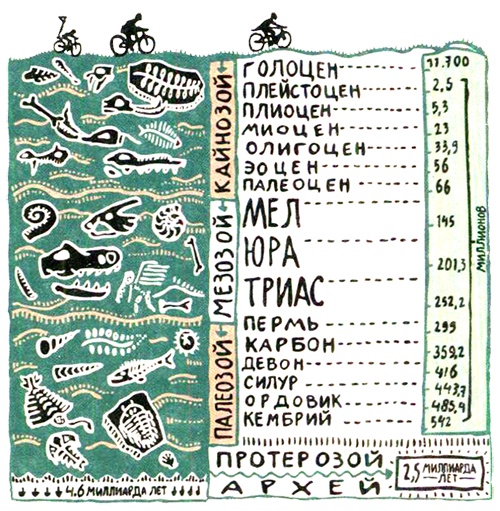 ГОЛОЦЕН 11.700
ПЛЕЙСТОЦЕН 2,5
ПЛИОЦЕН 5,3
МИОЦЕН 23
ОЛИГОЦЕН 33,9
ЭОЦЕН 56
ПАЛЕОЦЕН 66
КАЙНОЗОЙ
МЕЛ 145
ЮРА 201,3
ТРИАС 252,2
МЕЗОЗОЙ
МИЛЛИОНОВ
ПЕРМЬ 299
КАРБОН 359,2
ДЕВОН 416
СИЛУР 443,7
ОРДОВИК 485,4
КЕМБРИЙ 542
ПАЛЕОЗОЙ
ПРОТЕРОЗОЙ
2,5 МИЛЛИАРДА
ЛЕТ
4.6 МИЛЛИАРДА ЛЕТ
АРХЕЙ